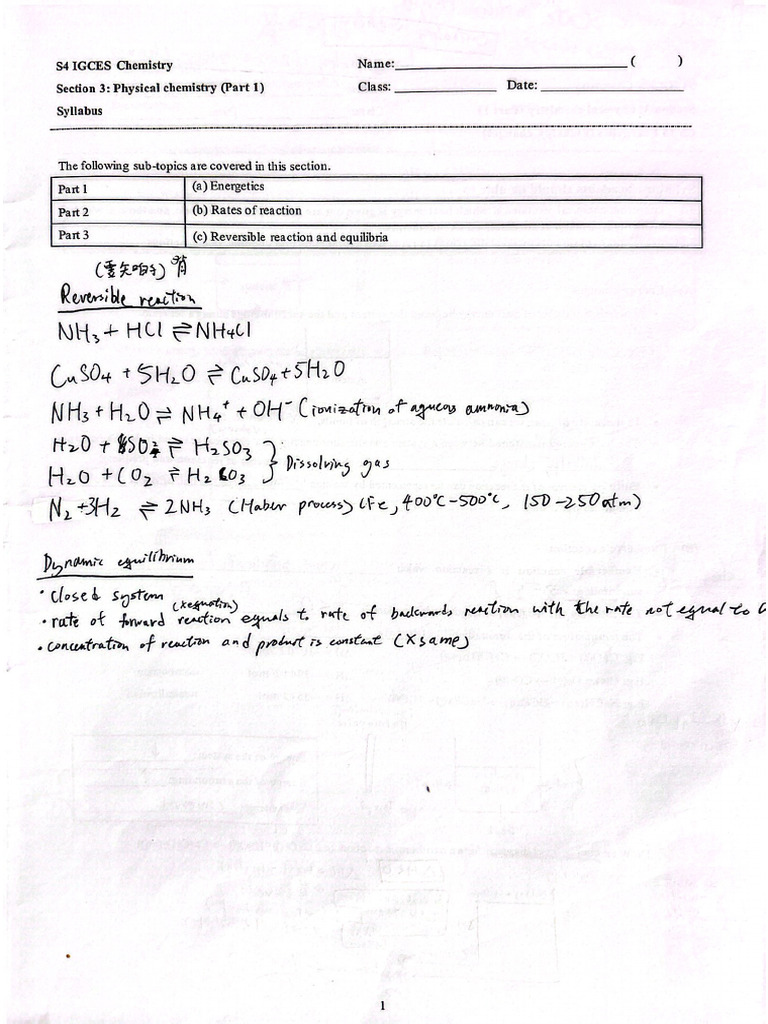 S4 IGCES Chemistry
Name: ( )
Section 3: Physical chemistry (Part 1)
Class: Date:
Syllabus
The following sub-topics are covered in this section.
Part 1 (a) Energetics
Part 2 (b) Rates of reaction
Part 3 (c) Reversible reaction and equilibria
Reversible reaction
NH₃ + HCl ⇌ NH₄Cl
CuSO₄ + 5H₂O ⇌ CuSO₄ + 5H₂O
NH₃ + H₂O ⇌ NH₄⁺ + OH⁻ (ionization of aqueous ammonia)
H₂O + SO₂ ⇌ H₂SO₃
H₂O + CO₂ ⇌ H₂CO₃ } Dissolving gas
N₂ + 3H₂ ⇌ 2NH₃ (Haber process) (Fe, 400°C-500°C, 150-250atm)
Dynamic equilibrium
• closed system
(x equation)
• rate of forward reaction equals to rate of backwards reaction with the rate not equal to
• concentration of reaction and product is constant (x same)
1